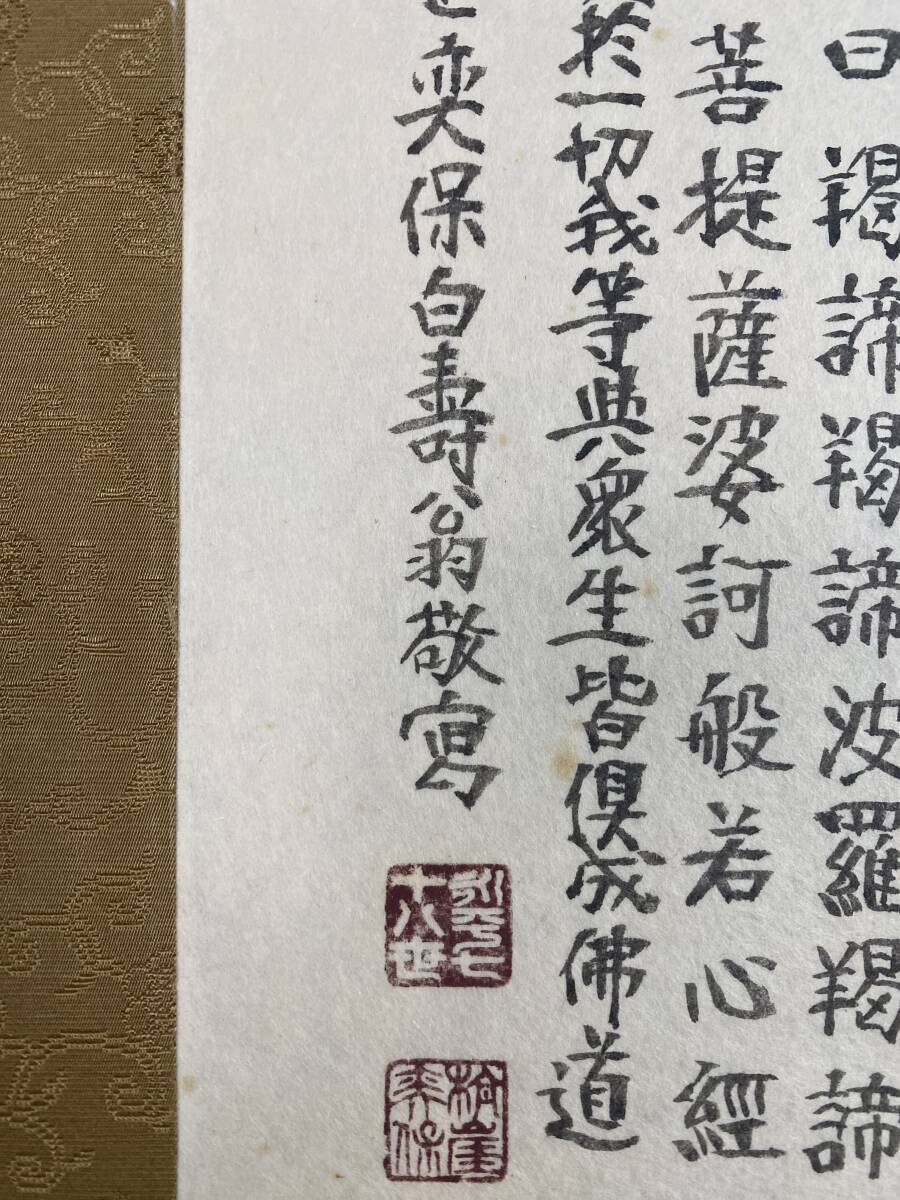 曰羯諦羯諦波羅羯諦
菩提薩婆訶般若心經
於一切我等與衆生皆倶成佛道
世奕保白壽翁敬寫
永平七十八世
奕保